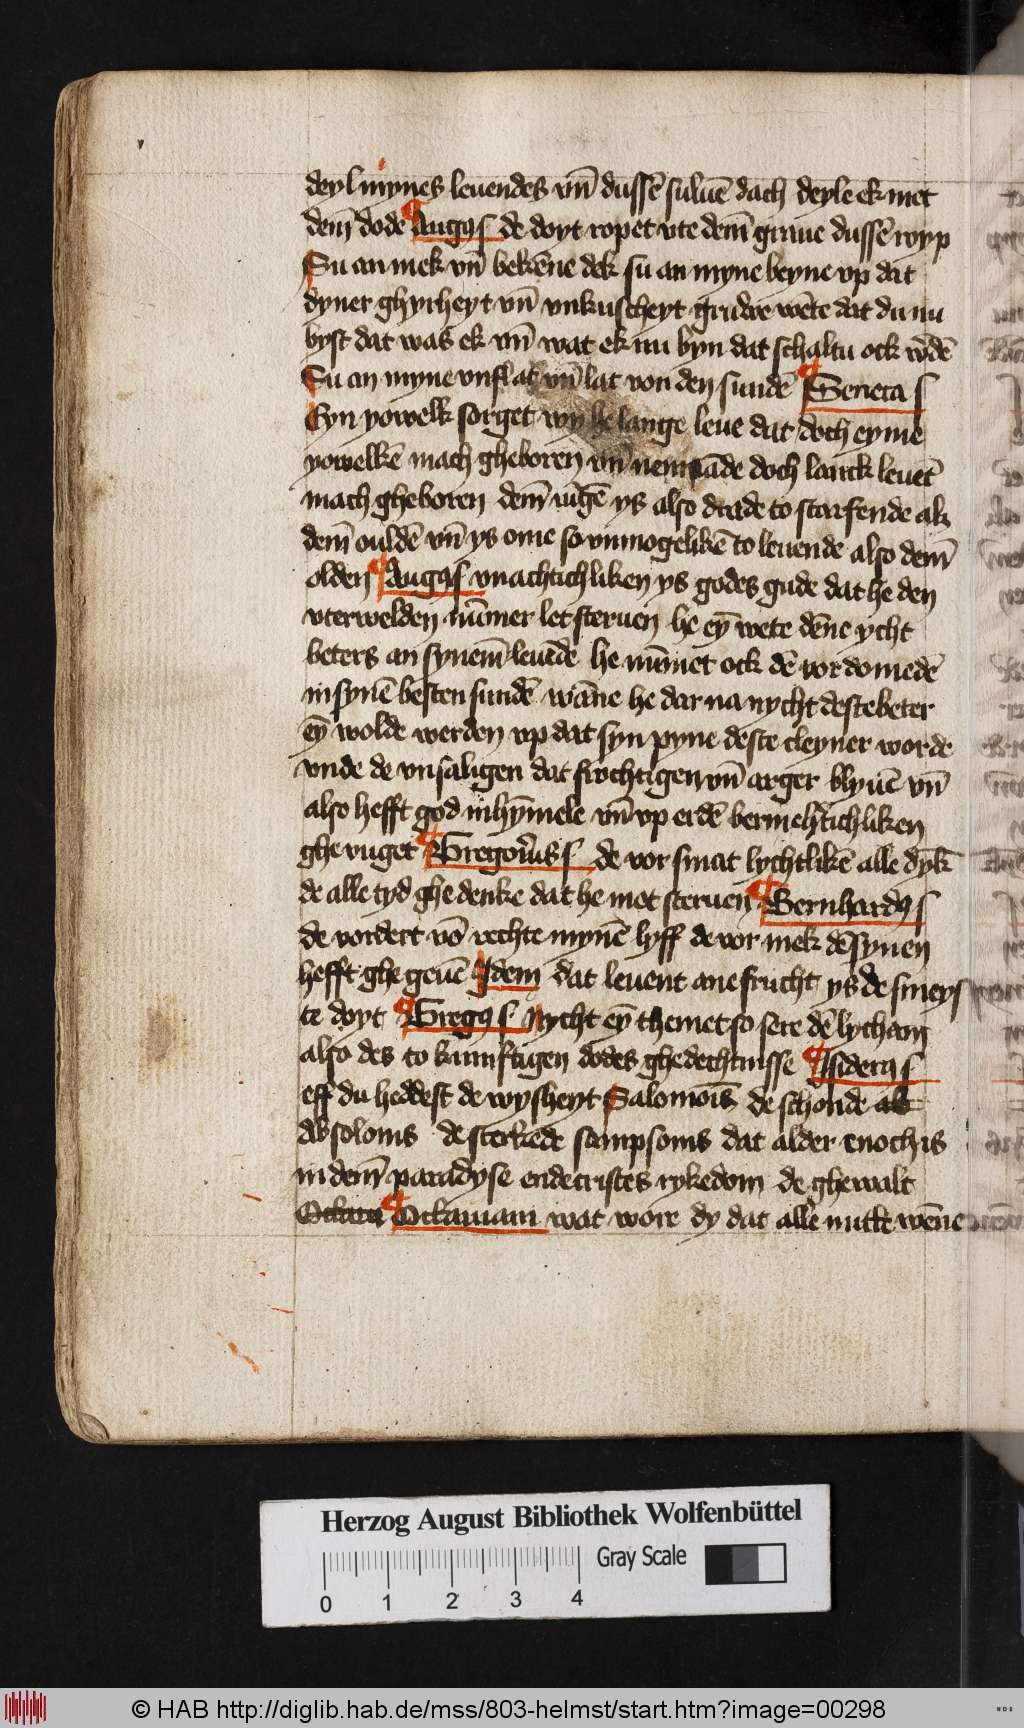 deyl mynes leuendes vn̄ dussē suluē dach deyle ek met
dem̄ dodē Augꝰ s de doyt ropet vte dem̄ graue dussē royp
Su an mek vn̄ bekēne dek su an myne beyne vp dat
dyner ghyrheyt vn̄ vnkuscheyt gruwe wēte dat du nu
byst dat was ek vn̄ wat ek nu byn dat schaltu ock w̄dē
Su an myne vnflat vn̄ lat von den sundē Seneca s
Eyn yowelk sorget wy he lange leue dat doch eyme
yowelkē mach gheboren vn̄ doch lanck leuet
mach gheboren dem̄ ys also drade to starfende alz
dem̄ ouldē vn̄ ys ome so vnmogelikē to leuende also dem̄
olden Augꝰ s vnachtichliken ys godes gude dat he den
vterwelden nūmer let steruen he eȳ wete dēne ycht
beters an synem̄ leuēde he nūmet ock dē vordomedē
in synē besten sundē wāne he dar na nycht deste beter
eȳ wolde werden vp dat syn pyne deste cleyner worde
vnde de vnsaligen dat frochtigen vn̄ arger blyuē vn̄
also hefft god in hȳmele vn̄ vp erdē bermehꝰtichliken
ghe vuget Gregoriꝰ s de vor smat lychtlikē alle dȳk
de alle tyd ghe denke dat he mot steruen Bernhardꝰ s
De vordert vō rechte mynē lyff de vor mek dē synen
hefft ghe geuē Idem dat leuent ane frucht ys de smeys
te doyt Gregꝰ s Nycht eȳ themet so sere dē lycham
also des to kumftigen dodes ghedechtnisse Isiderꝰ s
eff du heddest de wysheyt Salomōis de schonde ab
Absoloms de sterkede sampsoms dat alder enochis
in dem̄ paradyse endecristes rykedom de ghewalt
Octauia Octauiani wat wore dy dat alle nutte wēne
Herzog August Bibliothek Wolfenbüttel
Gray Scale
0 1 2 3 4
© HAB http://diglib.hab.de/mss/803-helmst/start.htm?image=00298